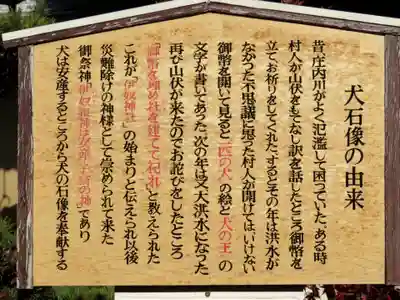 犬石像の由来
昔、庄内川がよく氾濫して困っていた。ある時
村人が山伏をもてなし訳を話したところ御幣を
立てお祈りをしてくれた。するとその年は洪水が
なかった不思議に思った村人が開けてはいけない
御幣を開いて見ると「一匹の犬」の絵と「犬の王」の
文字が書いてあった。次の年は又大洪水になった
再び山伏が来たのでお詫びをしたところ
「御幣を埋め社を建てて祀れ」と教えられた
これが「伊奴神社」の始まりと伝えられ以後
災難除けの神様として崇められて来た
御祭神「伊奴姫神は安産・子授の神」であり
犬は安産するところから犬の石像を奉献する